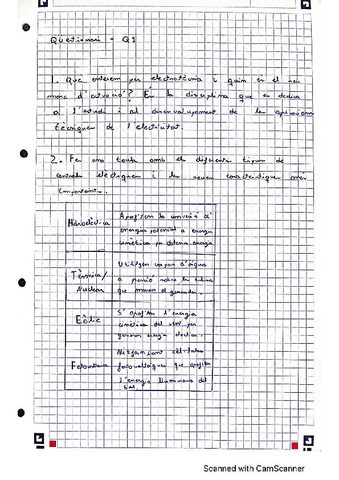 Qüestionari - Q1
1. Què entenem per electrotècnia i quin és el seu
marc d'actuació? És la disciplina que es dedica
a l'estudi i al desenvolupament de les aplicacions
tècniques de l'electricitat.
2. Fes una taula amb els diferents tipus de
centrals elèctriques i les seves característiques més
importants.
Hidroelèctrica
Aprofiten la conversió d'
energia potencial a energia
cinètica per obtenir energia
Tèrmica/
Nuclear
Utilitzen vapor d'aigua
a pressió sobre les turbines
que mouen el generador.
Eòlic
S'aprofita l'energia
cinètica del vent per
generar energia elèctrica.
Fotovoltaica
Mitjançant cèl·lules
fotovoltaiques que aprofita
l'energia lluminosa del
sol.
Scanned with CamScanner